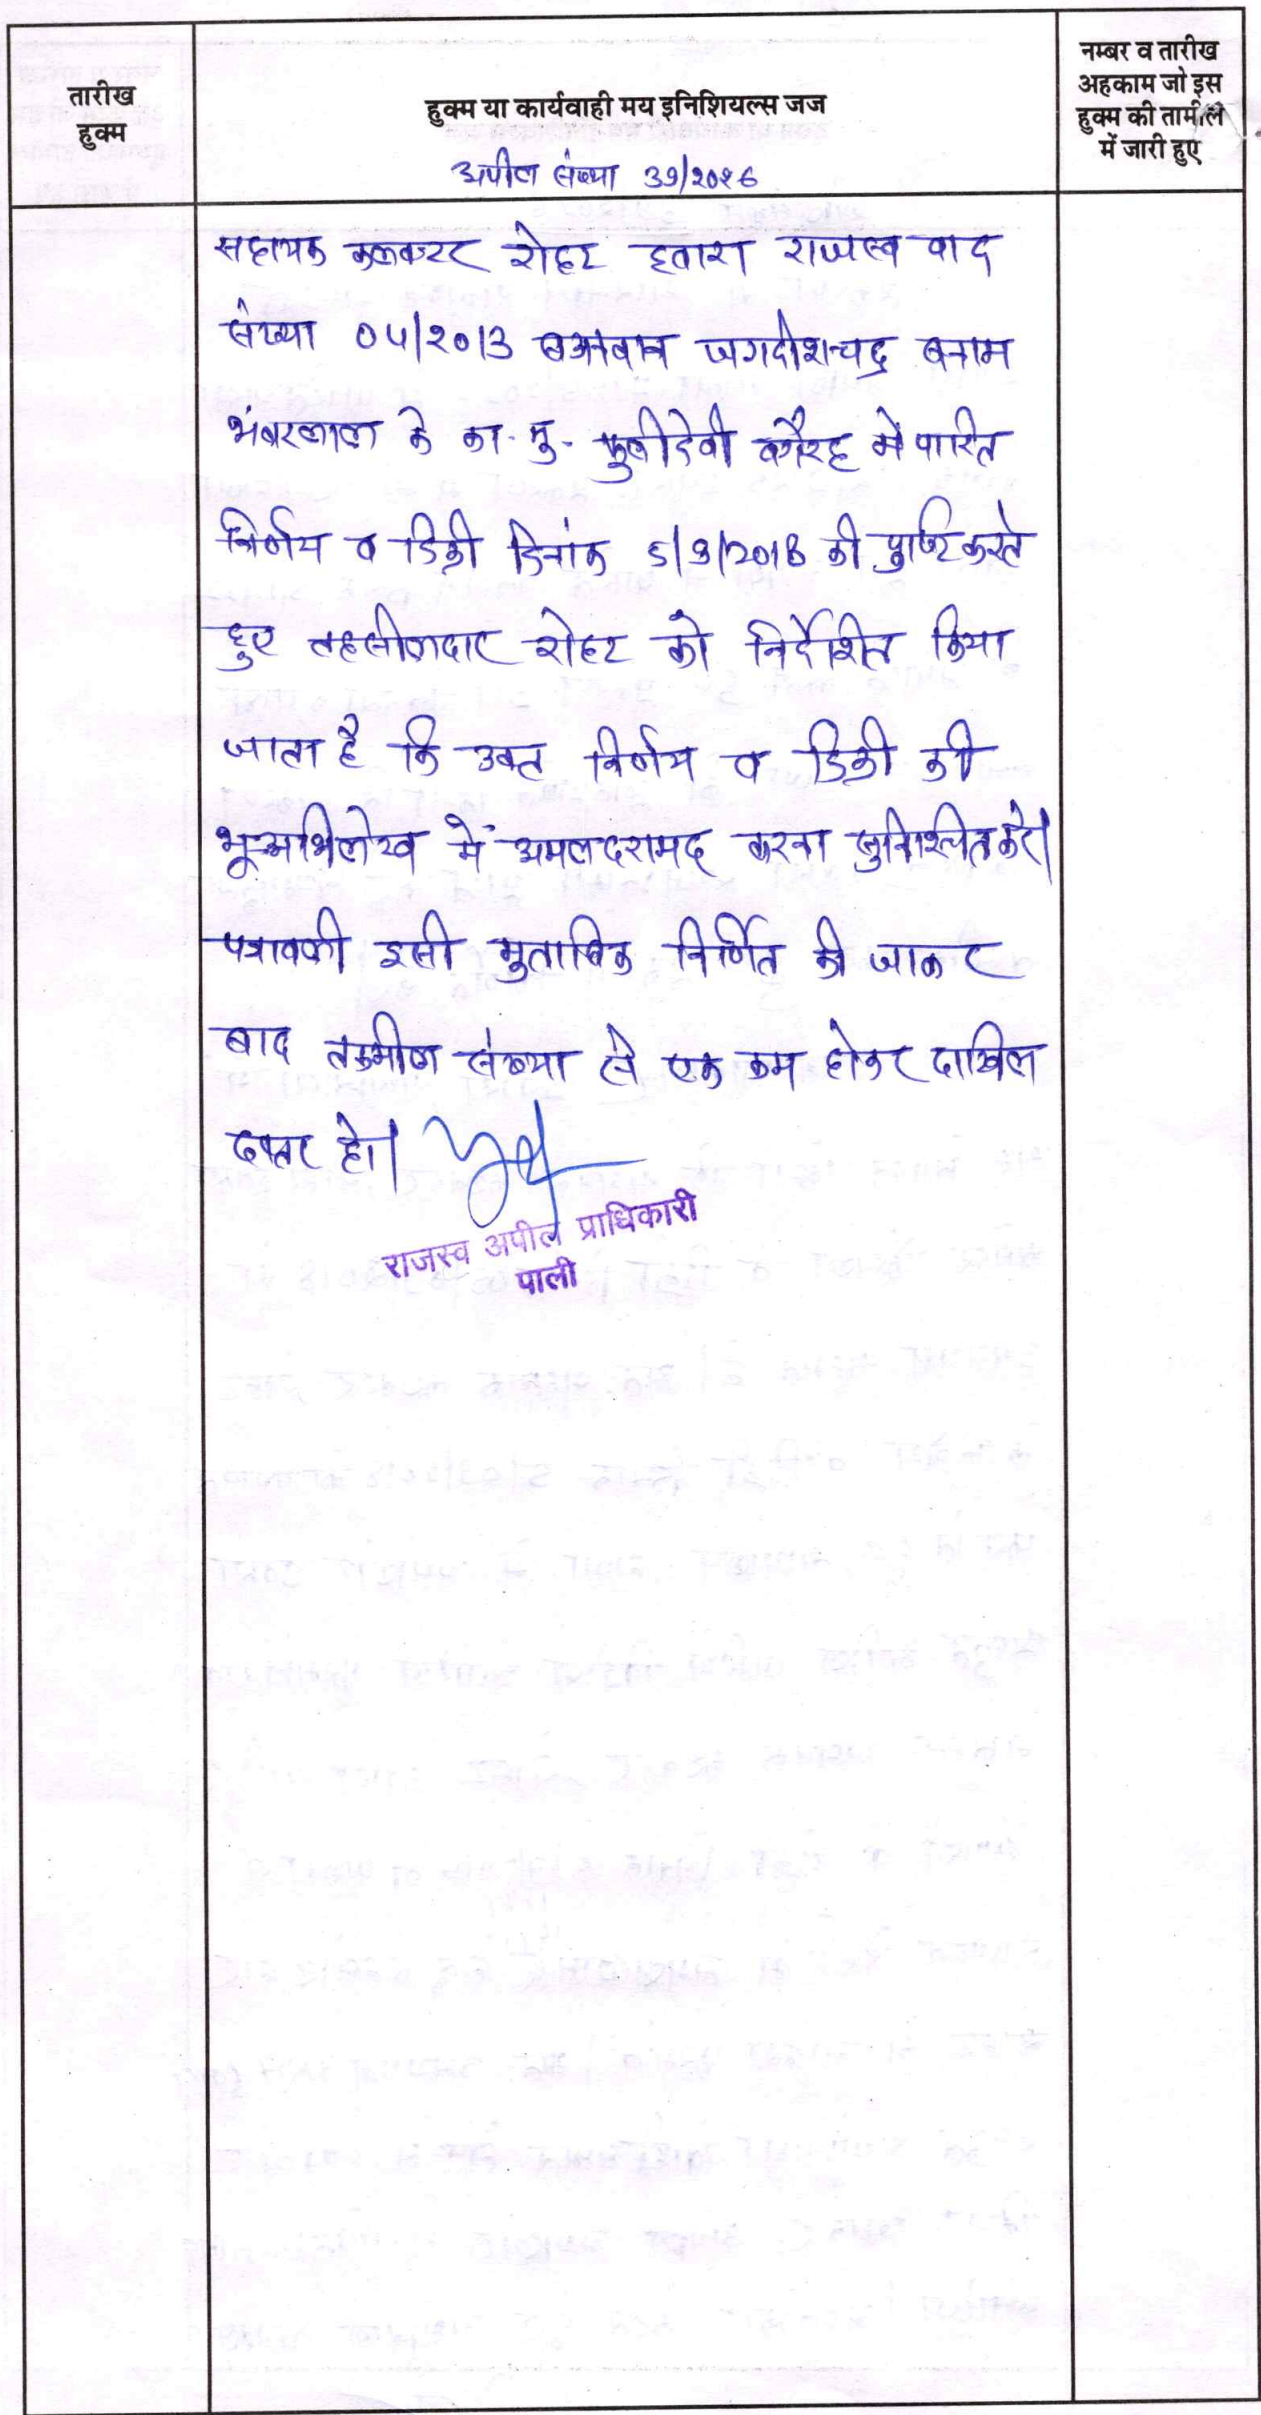 तारीख
हुक्म
हुक्म या कार्यवाही मय इनिशियल्स जज
नम्बर व तारीख
अहकाम जो इस
हुक्म की तामील
में जारी हुए
अपील संख्या 39/2026
सहायक कलक्टर रोहट द्वारा राजस्व वाद
संख्या 04/2013 बअनवान जगदीशचन्द्र बनाम
भंवरलाल के का. मु. फुलीदेवी वगैरह मे पारित
निर्णय व डिक्री दिनांक 5/3/2018 की पुष्टि करते
हुए तहसीलदार रोहट को निर्देशित किया
जाता है कि उक्त निर्णय व डिक्री की
भू-अभिलेख में अमलदरामद करना सुनिश्चित करे।
पत्रावली इसी मुताबिक निर्णित की जाकर
बाद तकमील संख्या से एक कम होकर दाखिल
दफ्तर हो।
राजस्व अपील प्राधिकारी
पाली